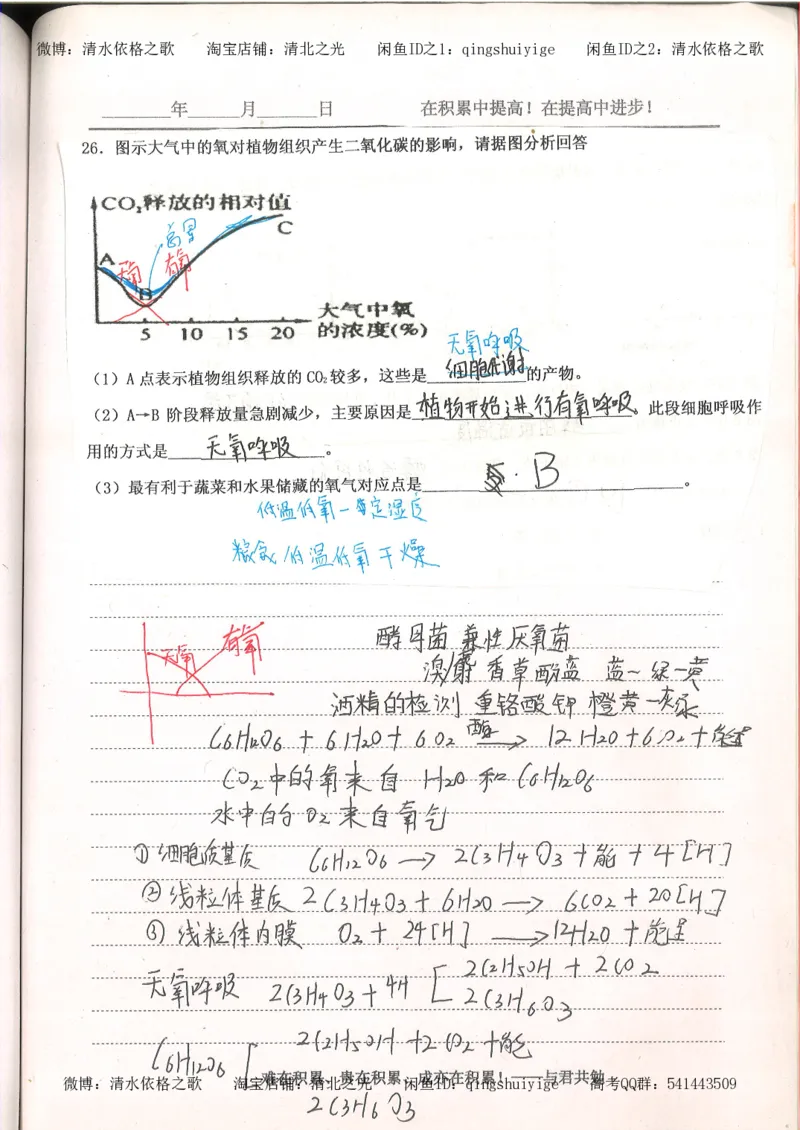 微博：清水依格之歌 淘宝店铺：清北之光 闲鱼ID之1：qingshuiyige 闲鱼ID之2：清水依格之歌
年 月 日 在积累中提高！在提高中进步！
26．图示大气中的氧对植物组织产生二氧化碳的影响，请据图分析回答
CO₂释放的相对值
C
高思
A 无氧 有氧
B
大气中氧
的浓度(%)
5 10 15 20
无氧呼吸
（1）A点表示植物组织释放的CO₂较多，这些是细胞代谢的产物。
（2）A→B 阶段释放量急剧减少，主要原因是植物开始进行有氧呼吸。此段细胞呼吸作
用的方式是 无氧呼吸 。
（3）最有利于蔬菜和水果储藏的氧气对应点是 B 。
低温低氧一定湿度
粮食 低温低氧干燥
无氧 有氧
酵母菌 兼性厌氧菌
溴麝香草酚蓝 蓝~绿一黄
酒精的检测 重铬酸钾 橙黄一灰绿
C6H12O6 + 6H2O + 6O2 酶→ 12H2O + 6CO2 + 能量
CO2中的氧来自 H2O 和 C6H12O6
水中的O2来自氧气
①细胞质基质 C6H12O6 → 2C3H4O3 + 能 + 4[H]
②线粒体基质 2C3H4O3 + 6H2O → 6CO2 + 20[H]
③线粒体内膜 O2 + 24[H] → 12H2O + 能量
2C2H5OH + 2CO2
无氧呼吸 2C3H4O3 + 4H
2C3H6O3
2C2H5OH + 2CO2 + 能
C6H12O6
难在积累，贵在积累，成亦在积累！——与君共勉
微博：清水依格之歌 淘宝店铺：清北之光 闲鱼ID：qingshuiyige 高考QQ群：541443509
2C3H6O3